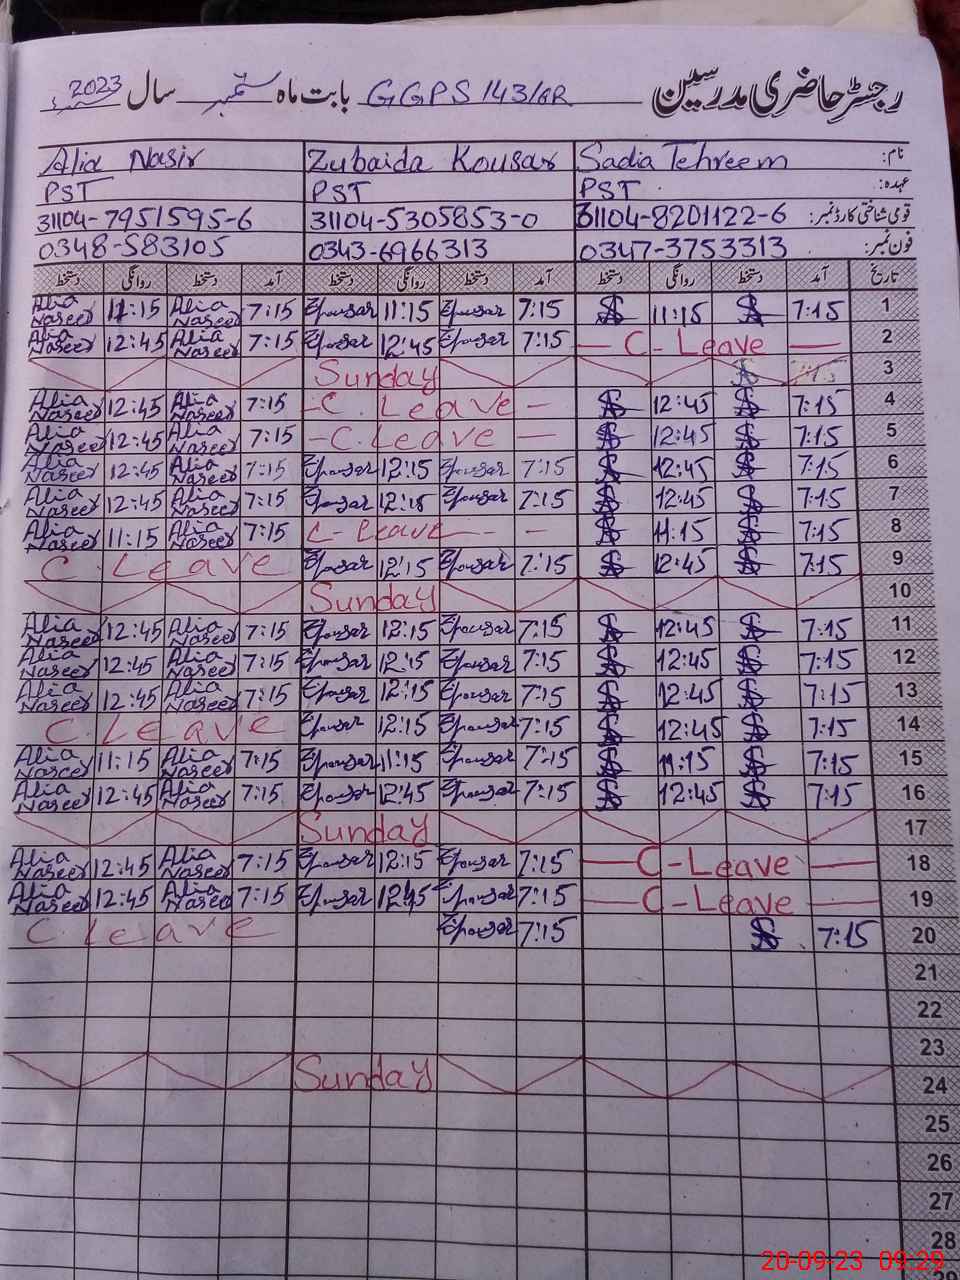 رجسٹر حاضری مدرسین GGPS 143/6R بابت ماہ ستمبر سال 2023
نام: Sadia Tehreem Zubaida Kousar Alia Nasir
عہدہ: PST PST PST
قومی شناختی کارڈ نمبر: 31104-8201122-6 31104-5305853-0 31104-7951595-6
فون نمبر: 0347-3753313 0343-6966313 0348-583105
تاریخ آمد دستخط روانگی دستخط آمد دستخط روانگی دستخط آمد دستخط روانگی دستخط
1 7:15 11:15 7:15 Zkousar 11:15 Zkousar 7:15 Alia Naseer 11:15 Alia Naseer
2 C-Leave 7:15 Zkousar 12:45 Zkousar 7:15 Alia Naseer 12:45 Alia Naseer
3 Sunday
4 7:15 12:45 C. Leave 7:15 Alia Naseer 12:45 Alia Naseer
5 7:15 12:45 C. Leave 7:15 Alia Naseer 12:45 Alia Naseer
6 7:15 12:45 7:15 Zkousar 12:15 Zkousar 7:15 Alia Naseer 12:45 Alia Naseer
7 7:15 12:45 7:15 Zkousar 12:15 Zkousar 7:15 Alia Naseer 12:45 Alia Naseer
8 7:15 11:15 C-Leave 7:15 Alia Naseer 11:15 Alia Naseer
9 7:15 12:45 7:15 Zkousar 12:15 Zkousar C. Leave
10 Sunday
11 7:15 12:45 7:15 Zkousar 12:15 Zkousar 7:15 Alia Naseer 12:45 Alia Naseer
12 7:15 12:45 7:15 Zkousar 12:15 Zkousar 7:15 Alia Naseer 12:45 Alia Naseer
13 7:15 12:45 7:15 Zkousar 12:15 Zkousar 7:15 Alia Naseer 12:45 Alia Naseer
14 7:15 12:45 7:15 Zkousar 12:15 Zkousar C. Leave
15 7:15 11:15 7:15 Zkousar 11:15 Zkousar 7:15 Alia Naseer 11:15 Alia Naseer
16 7:15 12:45 7:15 Zkousar 12:45 Zkousar 7:15 Alia Naseer 12:45 Alia Naseer
17 Sunday
18 C-Leave 7:15 Zkousar 12:15 Zkousar 7:15 Alia Naseer 12:45 Alia Naseer
19 C-Leave 7:15 Zkousar 12:45 Zkousar 7:15 Alia Naseer 12:45 Alia Naseer
20 7:15 7:15 Zkousar C. Leave
21
22
23
24 Sunday
25
26
27
28
29
20-09-23 09:29